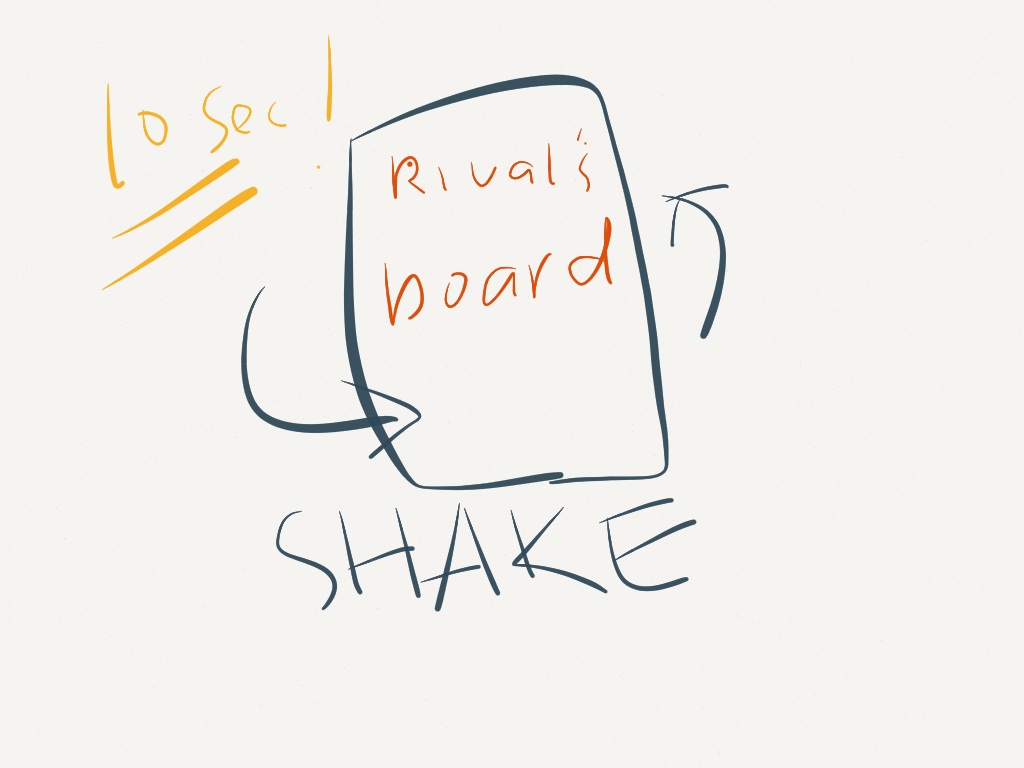 10 sec!
Rival's
board
SHAKE